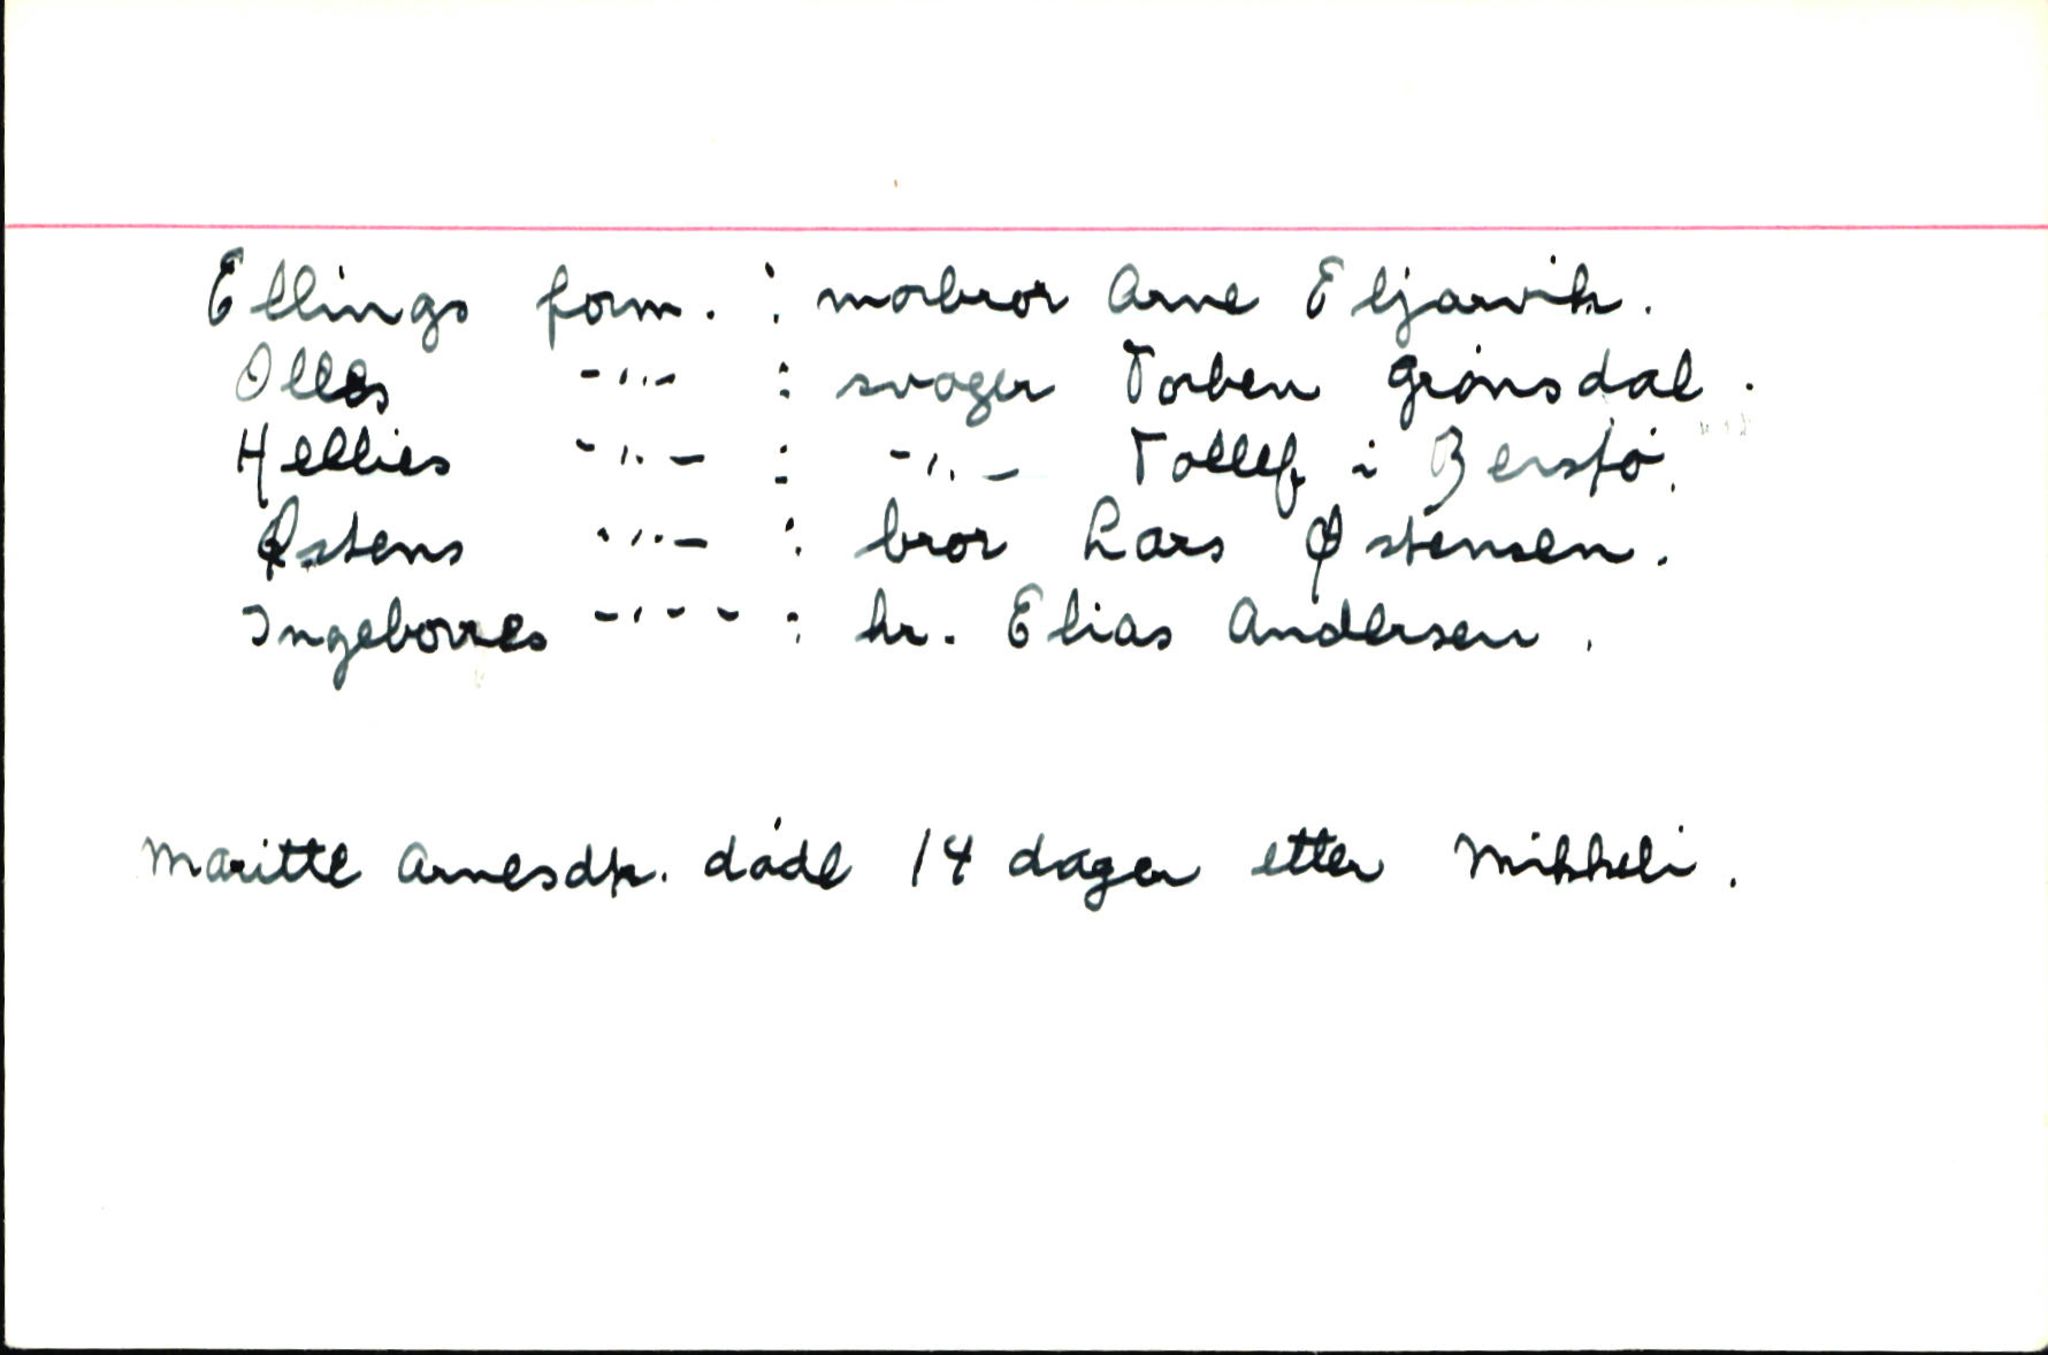 Ellings form. : morbror Arne Eljarvik.
Olles -"- : svoger Torben Grønsdal.
Hellies -"- : -"- Tollef i Berstø.
Østens -"- : bror Lars Østensen.
Ingeborres -"- : hr. Elias Andersen.
Maritte Arnesdtr. døde 14 dager etter Mikkeli.